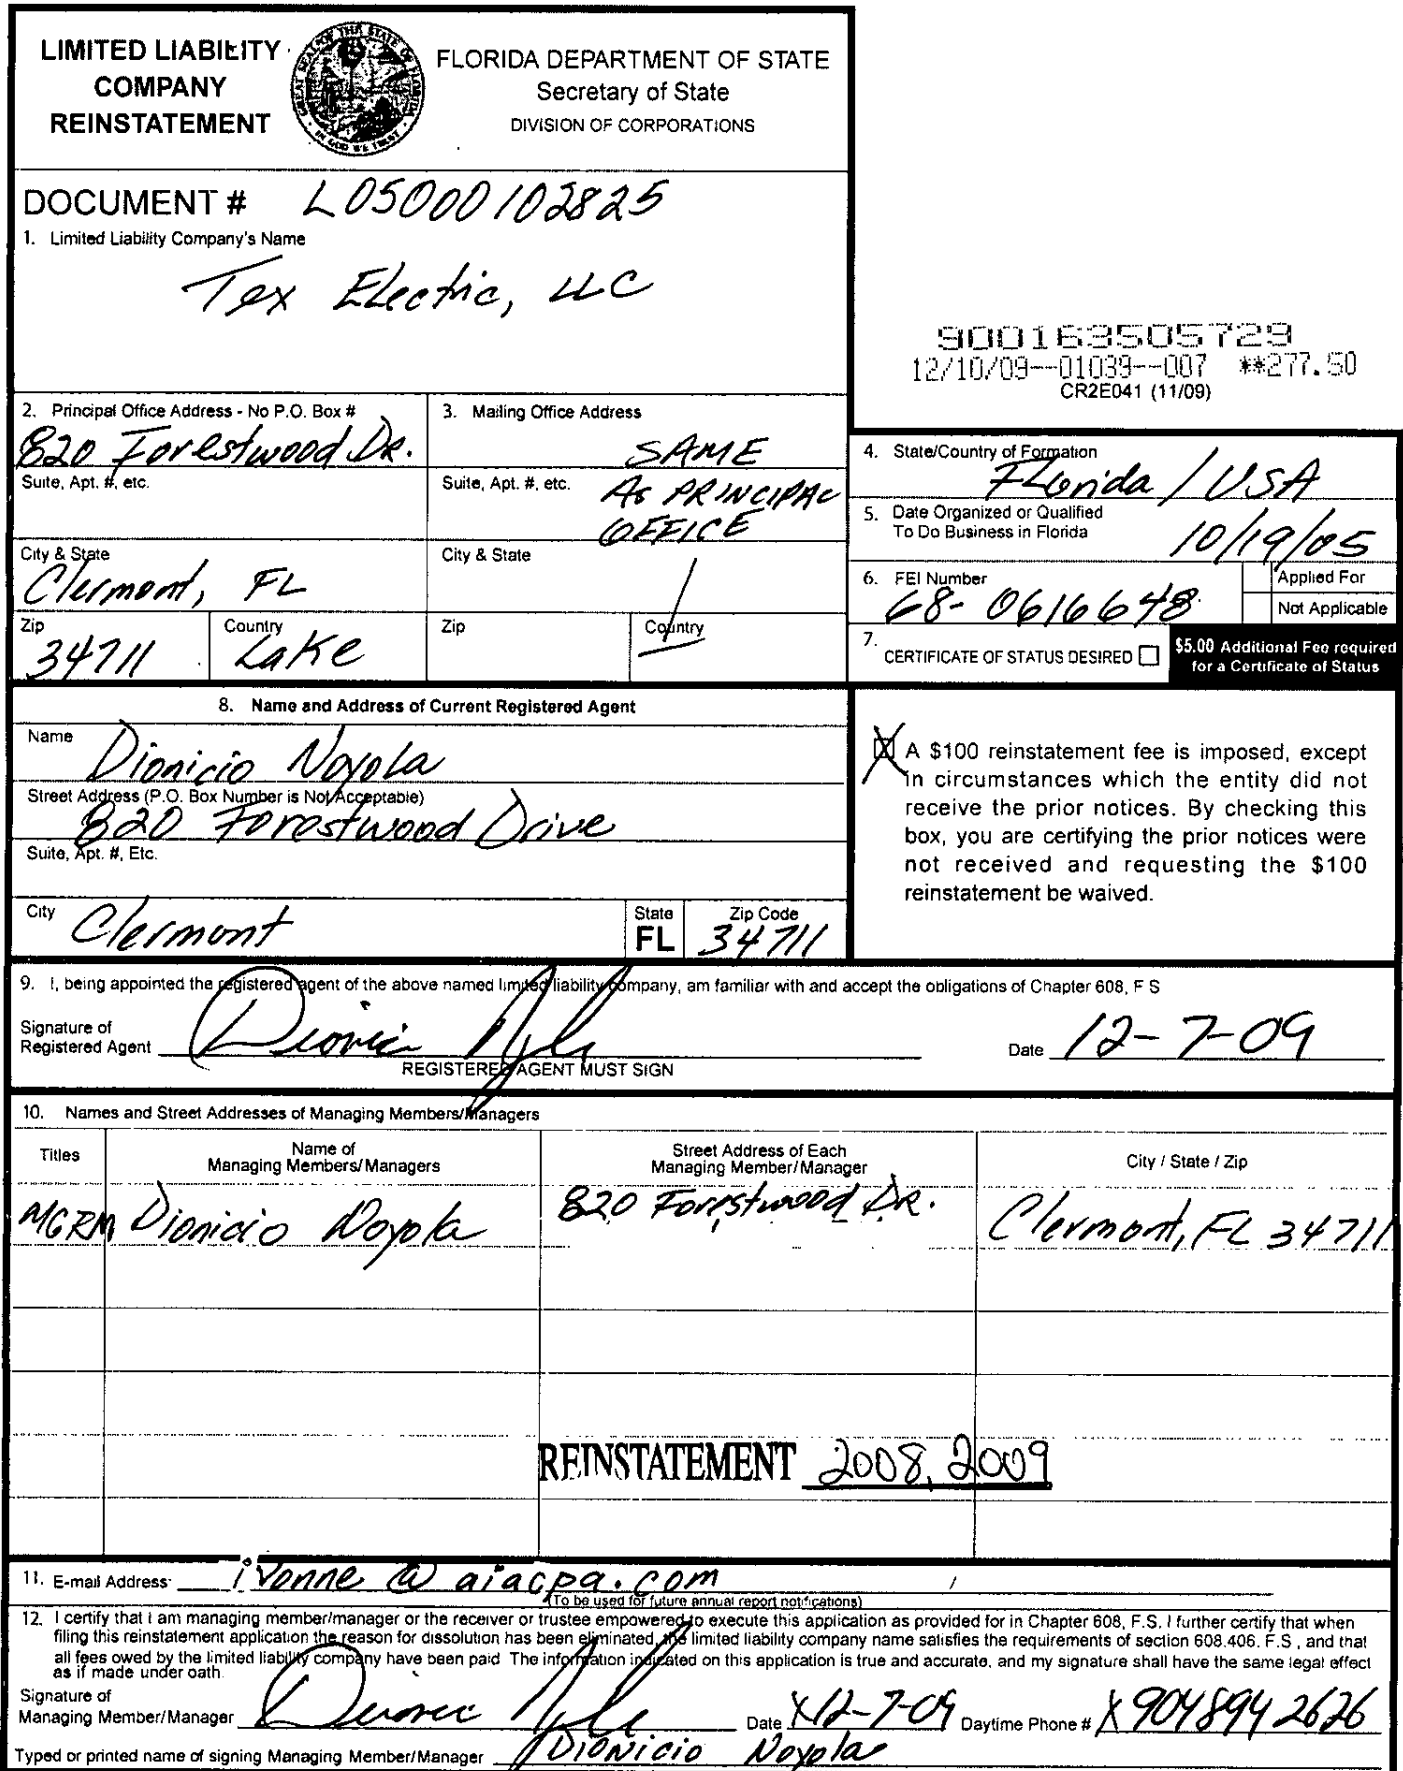 LIMITED LIABILITY
COMPANY
REINSTATEMENT
FLORIDA DEPARTMENT OF STATE
Secretary of State
DIVISION OF CORPORATIONS
DOCUMENT # L05000102825
1. Limited Liability Company's Name
Tex Electric, LLC
900163505729
12/10/09--01039--007 **277.50
CR2E041 (11/09)
2. Principal Office Address - No P.O. Box #
820 Forestwood Dr.
Suite, Apt. #, etc.
City & State
Clermont, FL
Zip
34711
Country
Lake
3. Mailing Office Address
SAME
Suite, Apt. #, etc.
As PRINCIPAL
OFFICE
City & State
Zip
Country
4. State/Country of Formation
Florida / USA
5. Date Organized or Qualified
To Do Business in Florida
10/19/05
6. FEI Number
68-0616648
Applied For
Not Applicable
7. CERTIFICATE OF STATUS DESIRED
$5.00 Additional Fee required
for a Certificate of Status
8. Name and Address of Current Registered Agent
Name
Dionicio Noyola
Street Address (P.O. Box Number is Not Acceptable)
820 Forestwood Drive
Suite, Apt. #, Etc.
City
Clermont
State
FL
Zip Code
34711
X A $100 reinstatement fee is imposed, except
in circumstances which the entity did not
receive the prior notices. By checking this
box, you are certifying the prior notices were
not received and requesting the $100
reinstatement be waived.
9. I, being appointed the registered agent of the above named limited liability company, am familiar with and accept the obligations of Chapter 608, F S
Signature of
Registered Agent
Date 12-7-09
REGISTERED AGENT MUST SIGN
10. Names and Street Addresses of Managing Members/Managers
Titles
Name of
Managing Members/Managers
Street Address of Each
Managing Member/Manager
City / State / Zip
MGRM Dionicio Noyola 820 Forestwood DR. Clermont, FL 34711
REINSTATEMENT 2008, 2009
11. E-mail Address: ivonne@aiacpa.com
(To be used for future annual report notifications)
12. I certify that I am managing member/manager or the receiver or trustee empowered to execute this application as provided for in Chapter 608, F.S. I further certify that when
filing this reinstatement application the reason for dissolution has been eliminated, the limited liability company name satisfies the requirements of section 608.406. F.S , and that
all fees owed by the limited liability company have been paid The information indicated on this application is true and accurate, and my signature shall have the same legal effect
as if made under oath
Signature of
Managing Member/Manager
Date X12-7-09 Daytime Phone # X 904 894 2626
Typed or printed name of signing Managing Member/Manager Dionicio Noyola